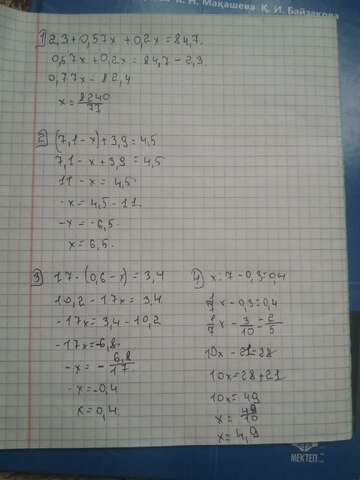 Н. Мақашева, К. И. Байзакова
1) 2,3+0,57x+0,2x=84,7.
0,57x+0,2x=84,7-2,3
0,77x=82,4
x=8240/77
2) (7,1-x)+3,9=4,5
7,1-x+3,9=4,5
11-x=4,5
-x=4,5-11
-x=-6,5
x=6,5.
3) 17·(0,6-x)=3,4
10,2-17x=3,4
-17x=3,4-10,2
-17x=-6,8
-x=-6,8/17
-x=-0,4
x=0,4.
4) x:7-0,3=0,4
1/7x-0,3=0,4
1/7x-3/10=2/5
10x-21=28
10x=28+21
10x=49
x=49/10
x=4,9
МЕКТЕП